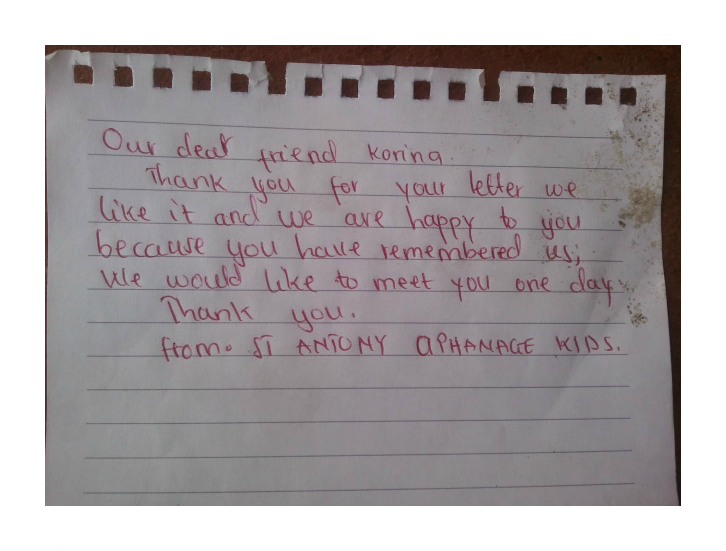 Our dear friend Korina.
Thank you for your letter we
like it and we are happy to you
because you have remembered us;
We would like to meet you one day.
Thank you.
from. ST ANTONY APHANAGE KIDS.